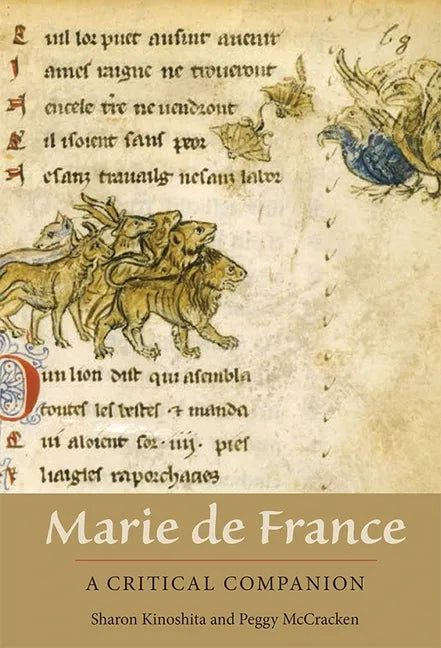 E uil lor puet ausint auenir
I ames uaigne ne troueront
A encele tre ne uendront
E il isoient sanz peor
N esanz trauailg nesanz labor
bg
D un lion dist qui asembla
toutes les bestes & manda
C ui aloient sor .iiij. piés
Marie de France
A CRITICAL COMPANION
Sharon Kinoshita and Peggy McCracken